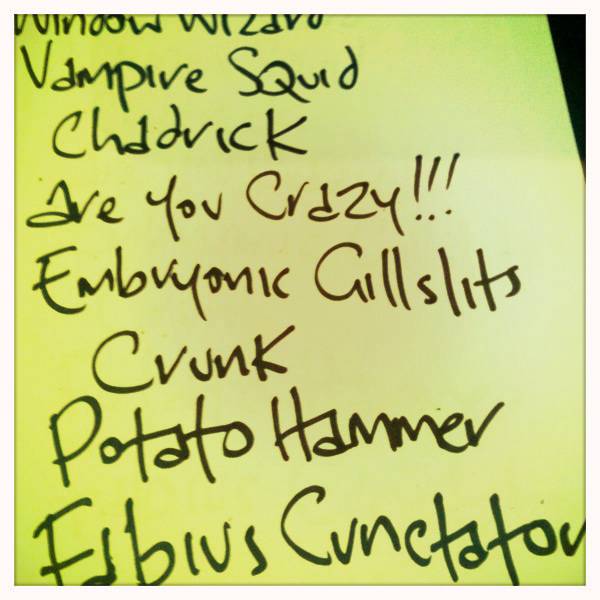 Window Wizard
Vampire Squid
Chadrick
are you Crazy!!!
Embryonic Gillslits
Crunk
Potato Hammer
Fabius Cunctator